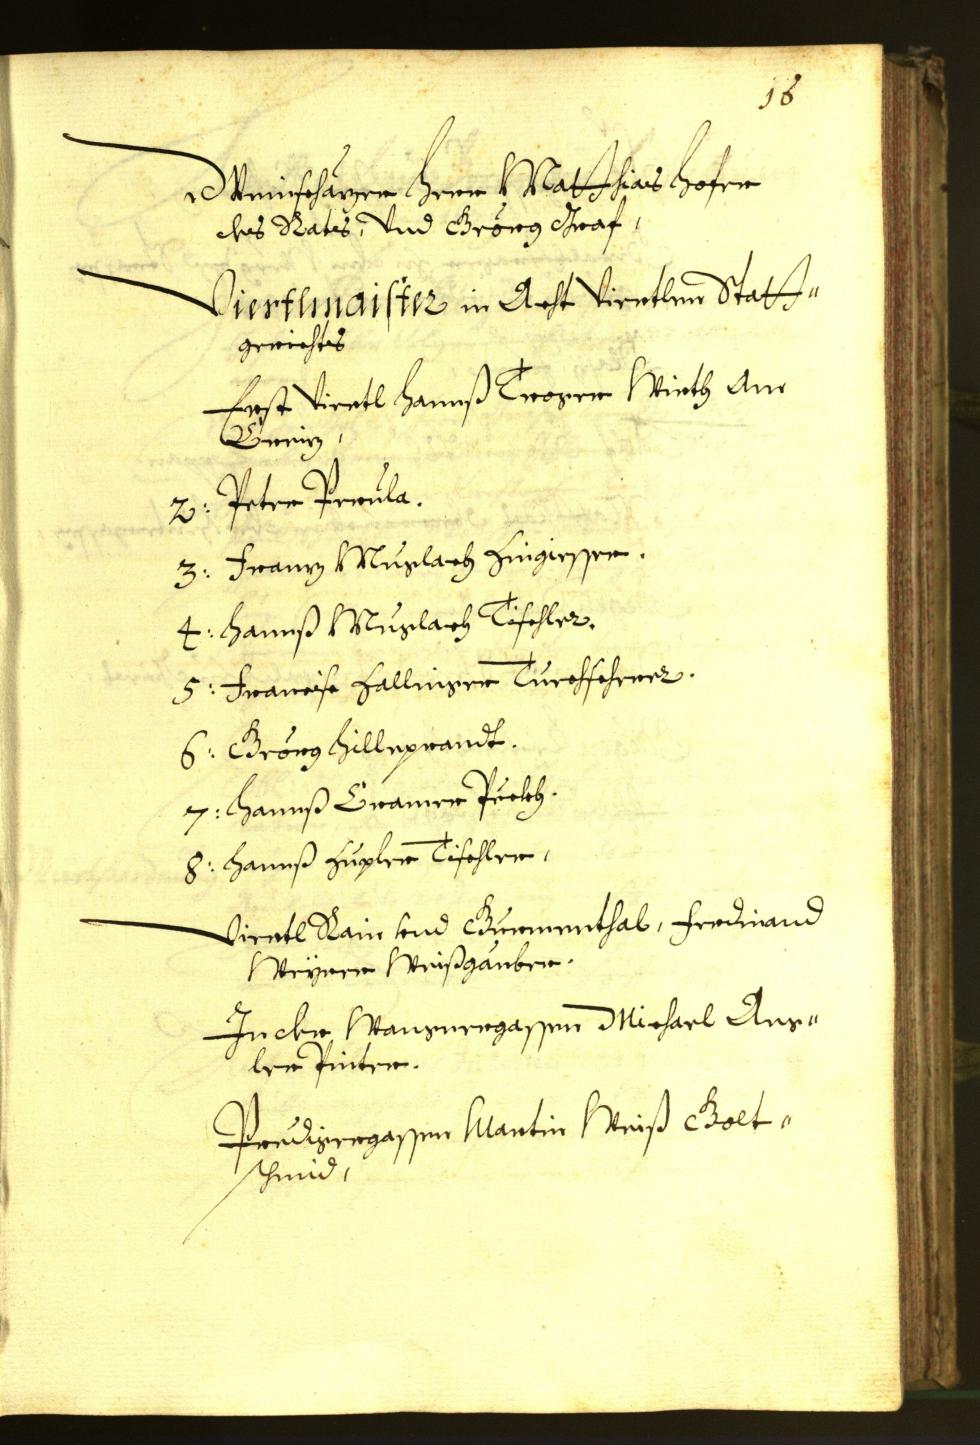 18
Weinschäzer Herr Matthias Hofer
des Rats, Vnd Geörg Graf,
Viertlmaister in Acht Viertlen Statt-
gerichts
Erst Viertl Hannß Troyer Wirth Am
Greiz,
2: Peter Preula.
3: Franz Muzlach Zingiesser.
4: Hannß Muzlach Tischler.
5: Francisc Zallinger Tuechscherer.
6: Geörg Hilleprandt.
7: Hannß Cramer Puelch.
8: Hannß Zupler Tischler,
Viertl Rain und Bluementhal, Ferdinand
Weÿrer Weißgärber.
In der Wangergassen Michael
ler Pinter.
Predigergassen Martin Weiß Golt-
schmid,